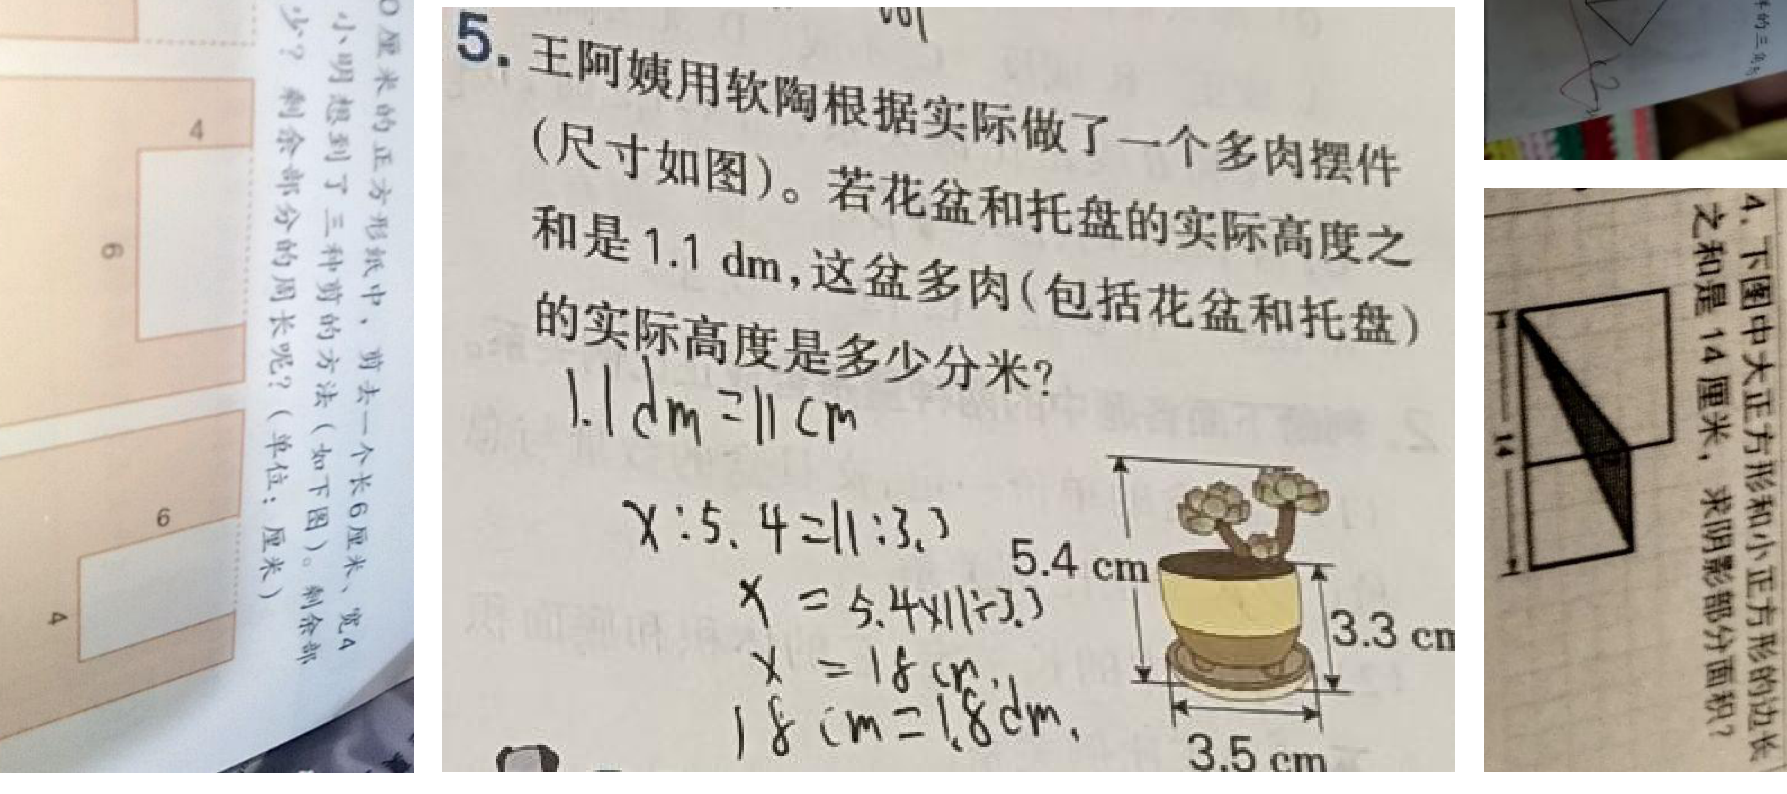 0厘米的正方形纸中,剪去一个长6厘米、宽4
小明想到了三种剪的方法(如下图)。剩余部
少?剩余部分的周长呢?(单位:厘米)
4
6
6
4
5.王阿姨用软陶根据实际做了一个多肉摆件
(尺寸如图)。若花盆和托盘的实际高度之
和是1.1 dm,这盆多肉(包括花盆和托盘)
的实际高度是多少分米?
1.1dm=11cm
x:5.4=11:3.3
x=5.4×11÷3.3
x=18cm.
18cm=1.8dm.
5.4 cm
3.3 cm
3.5 cm
的三角
4.下图中大正方形和小正方形的边长
之和是14厘米,求阴影部分面积?
14